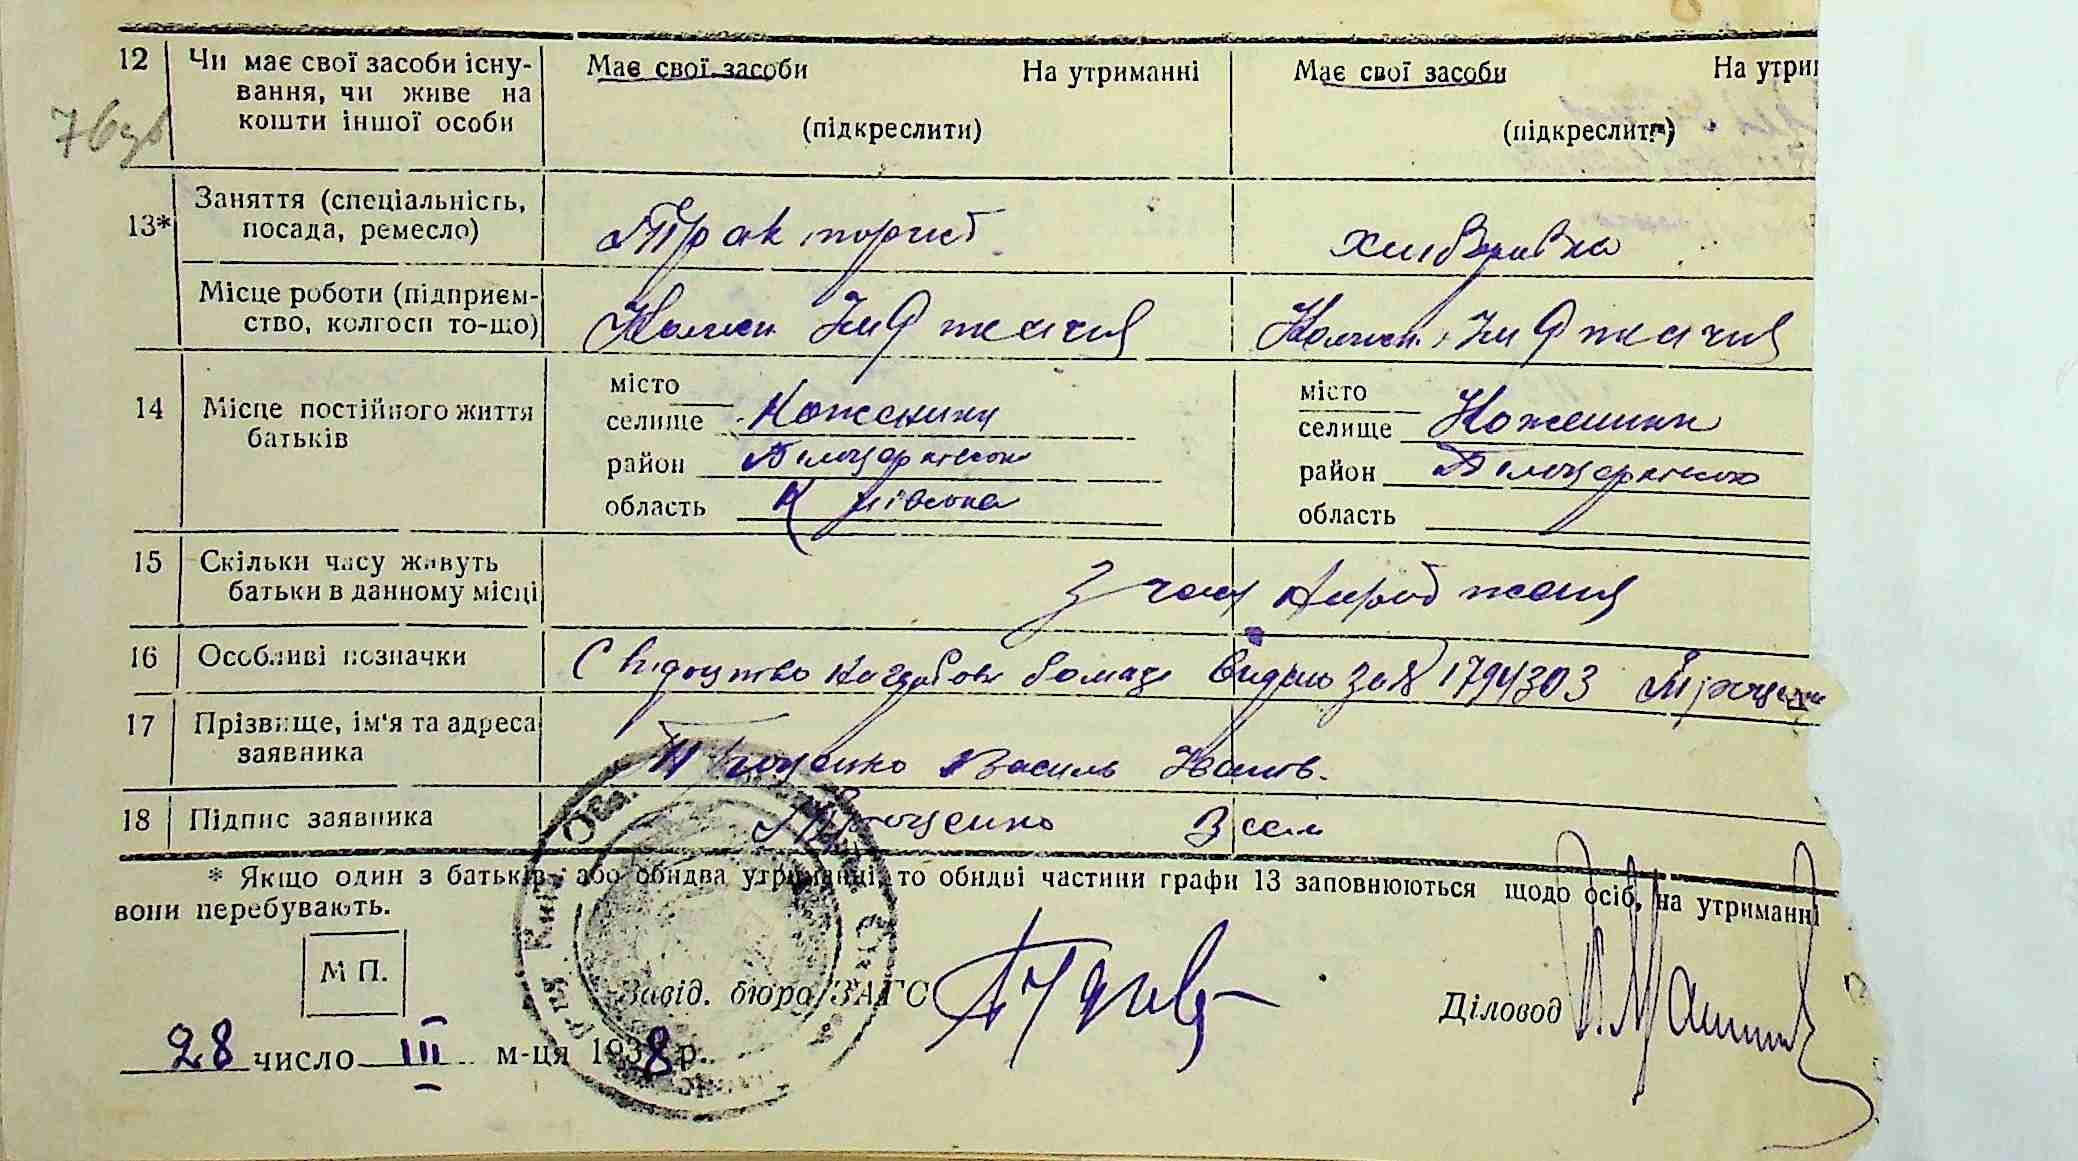 12 Чи має свої засоби існу- Має свої засоби На утриманні Має свої засоби На утри
вання, чи живе на
кошти іншої особи (підкреслити) (підкреслити)
13* Заняття (спеціальність, Тракторист
посада, ремесло)
Місце роботи (підприєм- Колгосп Ім Орженикід
ство, колгосп то-що)
14 Місце постійного життя
батьків
місто місто
селище Коженики селище Коженики
район Білоцерківськ район Білоцерківськ
область Київська область
15 Скільки часу живуть З часу народження
батьки в данному місці
16 Особливі позначки Свідоцтво видано за № 1794303 Троценко
17 Прізвище, ім'я та адреса Троценко Василь Іванов.
заявника
18 Підпис заявника Троценко
* Якщо один з батьків, або обидва утриманні, то обидві частини графи 13 заповнюються щодо осіб, на утриманні
вони перебувають.
М П.
Завід. бюро ЗАГС Діловод
28 число III м-ця 1938 р.